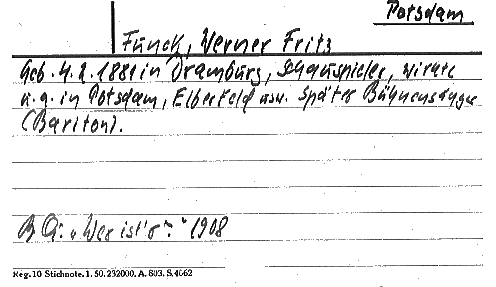 Potsdam
Funck, Werner Fritz
Geb. 4.2.1881 in Dramburg, Schauspieler, wirkte
u.a. in Potsdam, Elberfeld usw. Später Bühnensänger
(Bariton).
B Q: „Wer ist's?" 1908
Reg. 10 Stichnote. 1. 50. 232000. A. 803. S. 4062